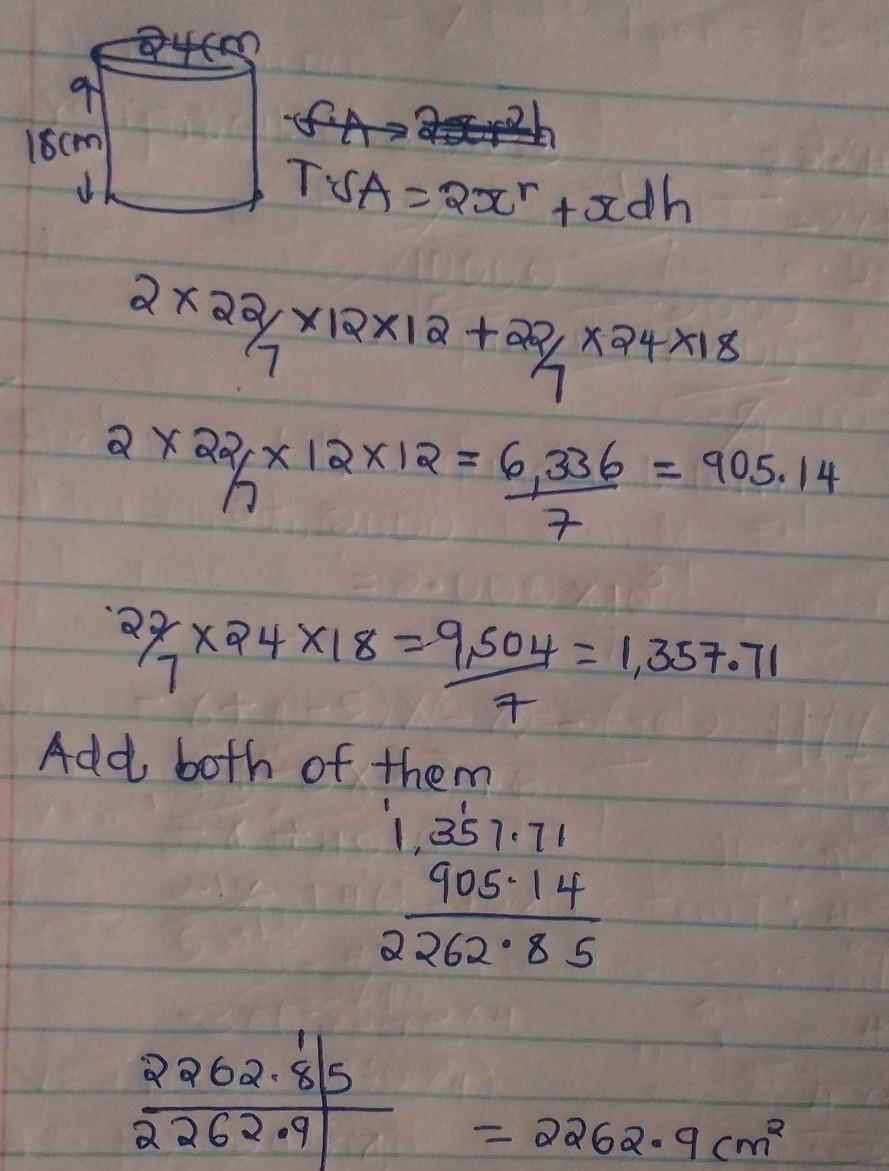 24cm
18cm
TSA = 2xr + xdh
2 × 22/7 × 12 × 12 + 22/7 × 24 × 18
2 × 22/7 × 12 × 12 = 6,336/7 = 905.14
22/7 × 24 × 18 = 9,504/7 = 1,357.71
Add both of them
1 1
1,357.71
905.14
2262.85
1
2262.8|5
2262.9| = 2262.9 cm²